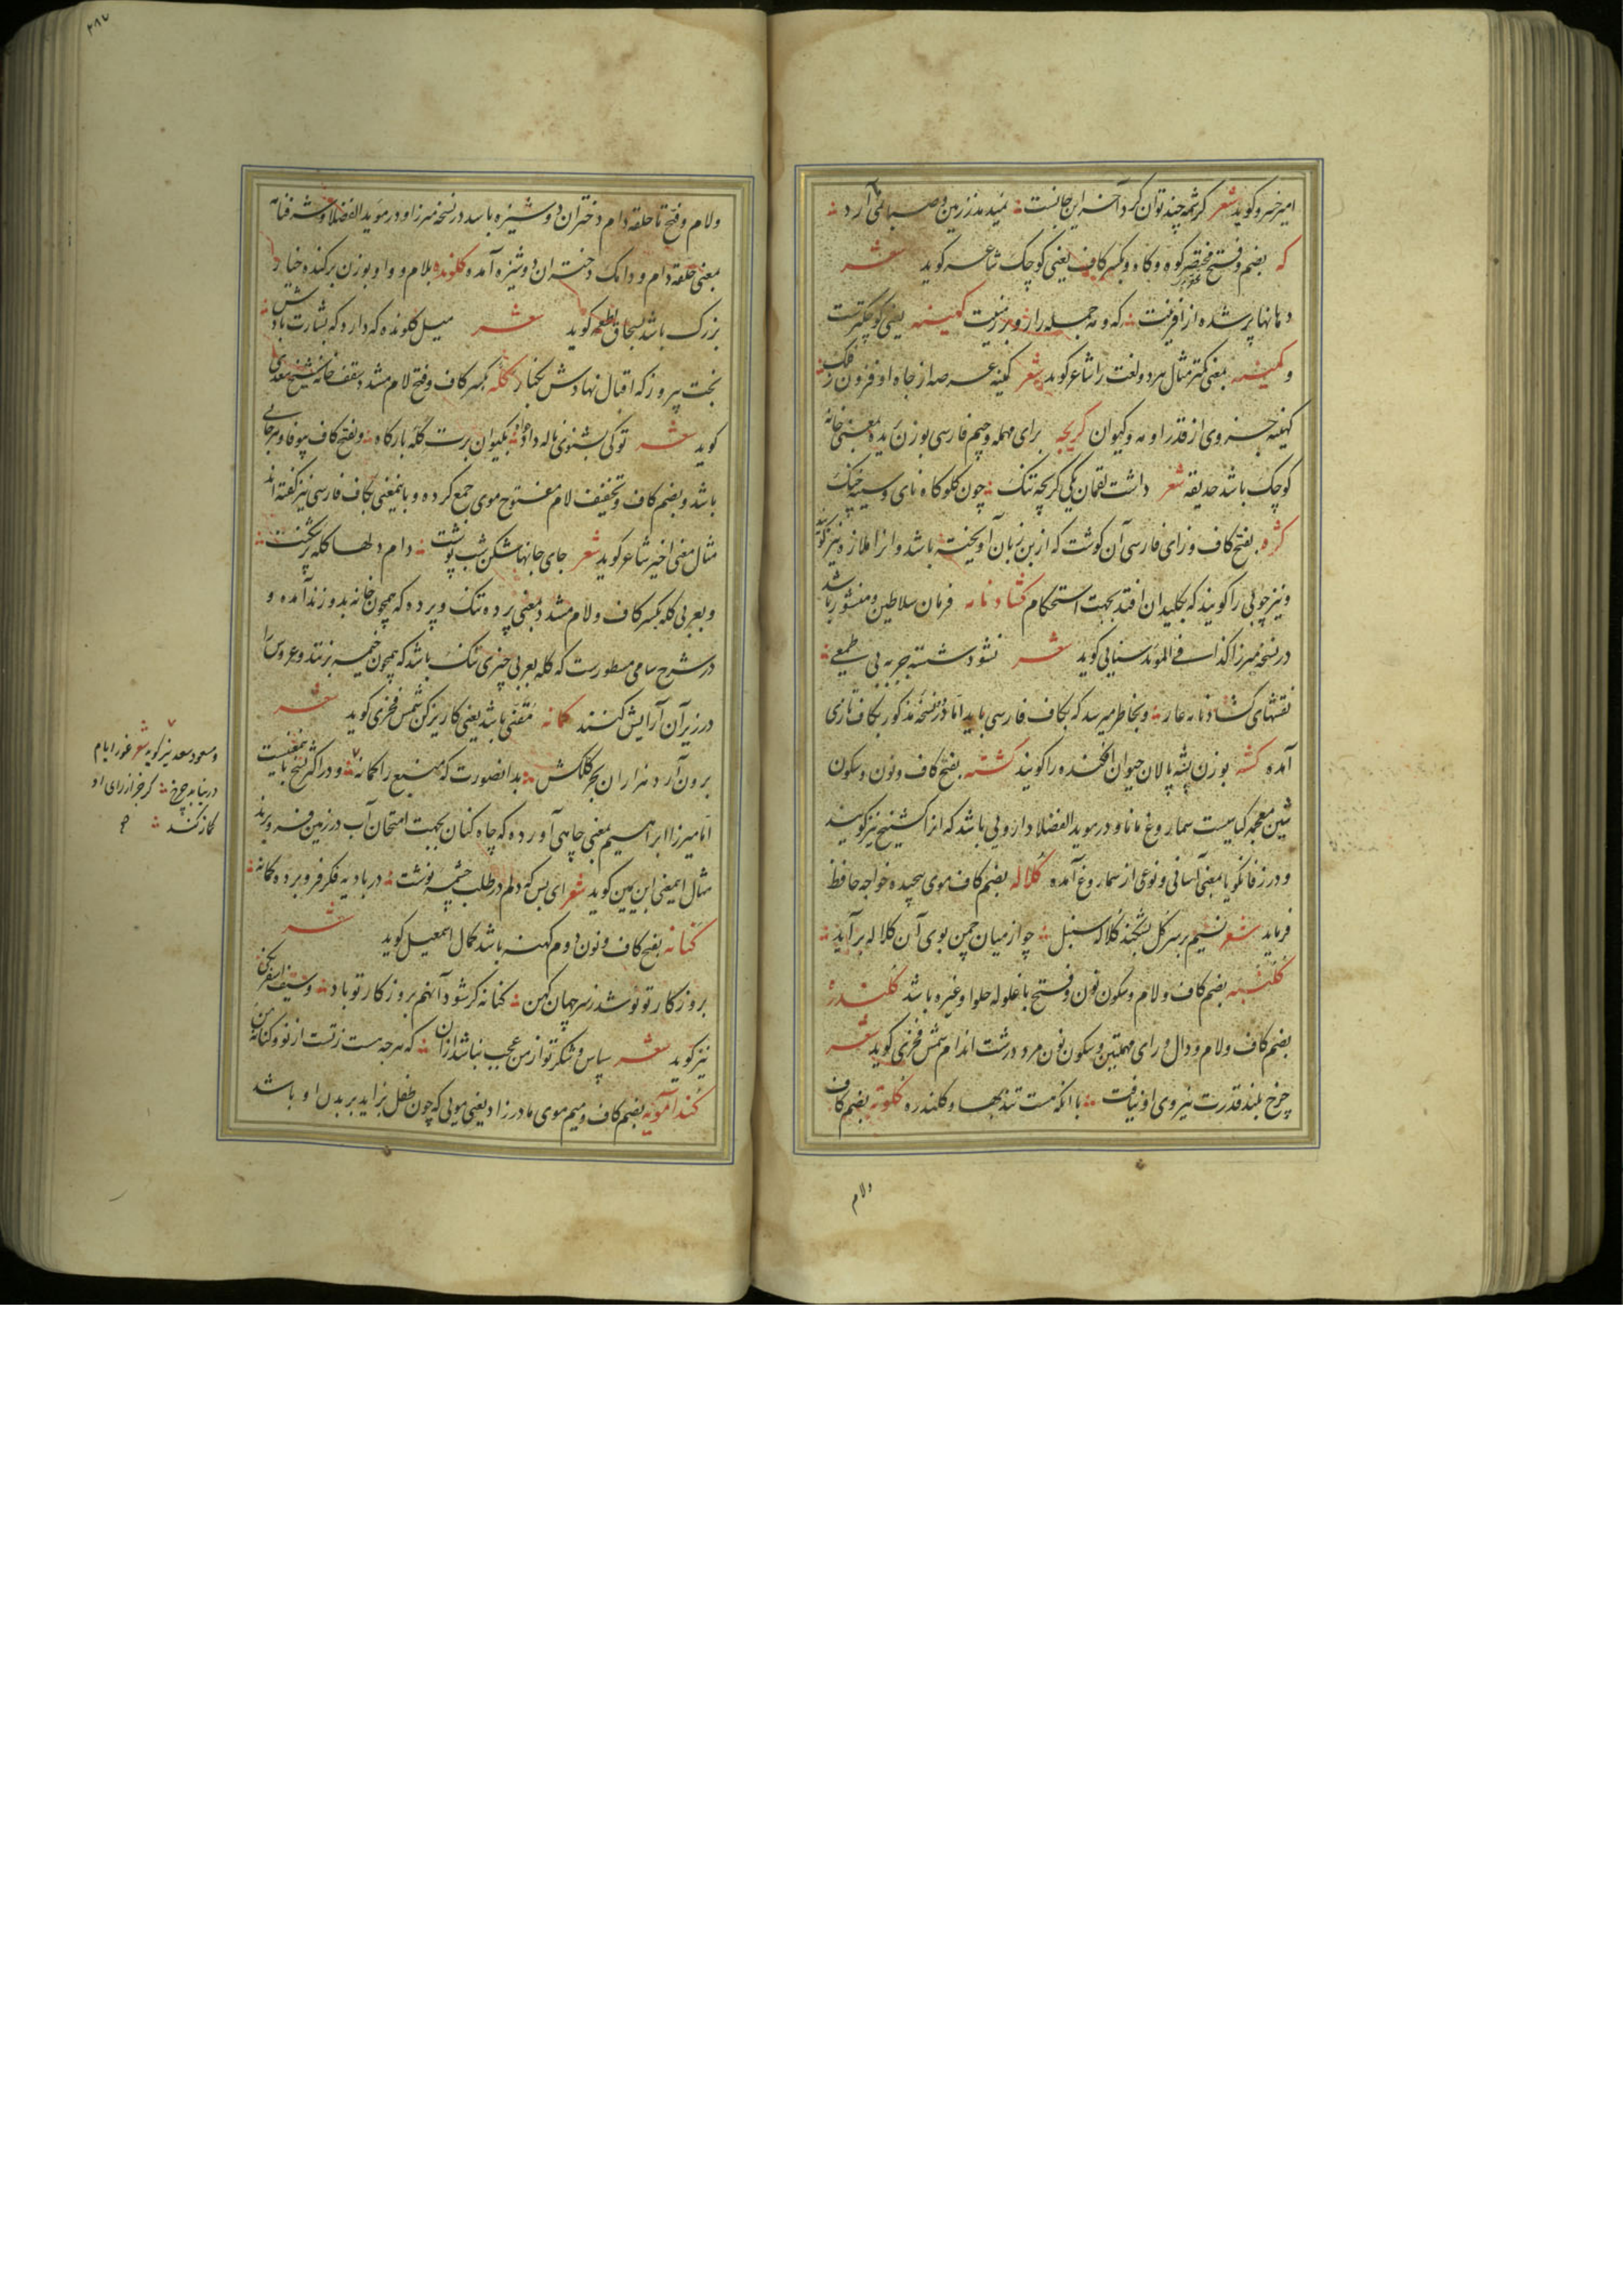 امیرخسرو گوید شعر کرشمه چند توان کرد آخر این جانست نمیدمد ز زمین و صبا نمی آرد
که بضم و فتح مختصر کوه و کاه و بکسر کاف یعنی کوچک شاعر گوید شعر
دهانها پر شده از آفرینت که و مه جمله را زو بر زمینت کمینه یعنی کوچکترست
و کمینه بمعنی کمتر مثال هر دو لغت را شاعر گوید شعر کمینه عرصه از جاه او فزون ز فلک
کهینه جزوی از قدر او مه و کیوان کریچه برای مهمله و جیم فارسی بوزن بمعنی خانه
کوچک باشد حدیقه شعر داشت لقمان یکی کریچه تنک چون کلوکاه نای و سینه چنک
کژه بفتح کاف و زای فارسی آن گوشت که از بن زبان آویخته باشد و انرا ملازه نیز گویند
و نیز چوبی را گویند که بکلیدان افتد بجهت استحکام کشادنامه فرمان سلاطین و منشور باشد
در نسخه میرزا کذا فی المؤید سنایی گوید شعر نشود شسته جز به بی طمعی
نقشهای کشادنامه عار و بخاطر میرسد که بکاف فارسی باید اما در نسخه مذکور بکاف تازی
آمده کشه بوزن پشه پالان حیوان افکنده را گویند کشنه بفتح کاف و نون و سکون
شین معجمه کیاهیست سماروغ مانا و در موید الفضلا دارویی باشد که انرا کشنج نیز گویند
و در زفانگویا بمعنی آسانی و نوعی از سماروغ آمده کلاله بضم کاف موی پیچیده خواجه حافظ
فرماید شعر نسیم بر سر گل بشکند کلاله سنبل چو از میان چمن بوی آن کلاله برآید
کلنبه بضم کاف و لام و سکون نون و فتح با غلوله حلوا و غیره باشد کلندره
بضم کاف و لام و دال و رای مهملتین و سکون نون مرد درشت اندام شمس فخری گوید شعر
چرخ بلند قدرت نیروی او نیافت با آنکه هست تندیها و کلندره کلوته بضم کاف
ولام
۲۸۷
ولام و فتح تا حلقه دام دختران دوشیزه باشد در نسخه میرزا و در موید الفضلا و شرفنامه
بمعنی حلقه دام و دامک دختران دوشیزه آمده کلونده بلام و واو بوزن برکنده خیار
بزرک باشد بسحاق اطعمه گوید شعر میل کلونده که دارد که بشارت بادش
بخت پیروز که اقبال نهادش بکنار کله بکسر کاف و فتح لام مشدد سقف خانه شیخ سعدی
گوید شعر تو کی بشنوی ناله دادخواه بکیوان برت کله بارگاه و بفتح کاف بیوفا و هرجایی
باشد و بضم کاف و تخفیف لام مفتوح موی جمع کرده و باینمعنی بکاف فارسی نیز گفته اند
مثال معنی اخیر شاعر گوید شعر جای جانها شکن شب پوشت دام دلها کله پر شکنت
و بعربی کله بکسر کاف و لام مشدد بمعنی پرده تنک و پرده که همچون خانه بدوزند آمده و
در شرح سامی مسطورست که کله بعربی چیزی تنک باشد که همچون خیمه بزنند و عروس را
در زیر آن آرایش کنند کمانه مقنی باشد یعنی کاریزکن شمس فخری گوید شعر
برون آرد هزاران بحر کلکش بدانصورت که منبع را کمانه و در اکثر نسخ باینمعنیست
اما میرزا ابراهیم بمعنی چاهی آورده که چاه کنان بجهت امتحان آب در زمین فرو برند
مثال اینمعنی ابن یمین گوید شعر ای بس که دلم در طلب چشمه نوشت در بادیه فکر فرو برده کمانه
کنانه بفتح کاف و نون دوم کهنه باشد کمال اسمعیل گوید شعر
بروزکار تو نو شد ز سر جهان کهن کنانه کر شود آنهم بروزکار تو باد و سیف اسفرنکی
نیز گوید شعر سپاس و شکر تو از من عجب نباشد ازان که هرچه هست ز تست از نو و کنانه من
کندامویه بضم کاف و میم موی مادرزاد یعنی مویی که چون طفل بزاید بر بدن او باشد
و مسعود سعد نیز گوید شعر غور ایام
درنیابد چرخ کر جز از رای او
کمانه کند